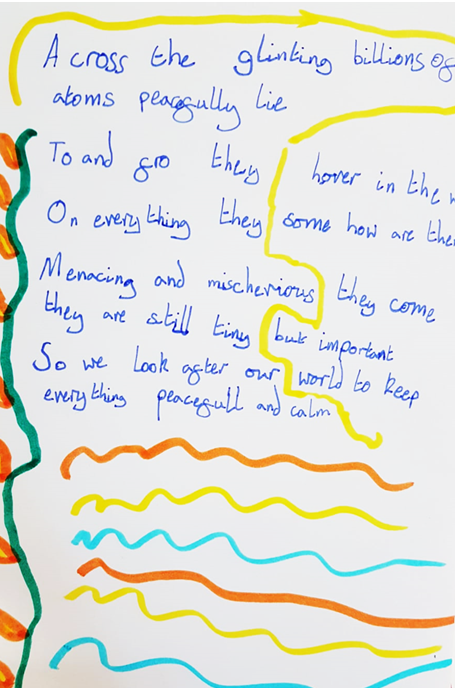 Across the glinting billions of
atoms peacefully lie
To and fro they hover in the
On everything they some how are
Menacing and mischevious they come
they are still tiny but important
So we look after our world to keep
everything peacefull and calm